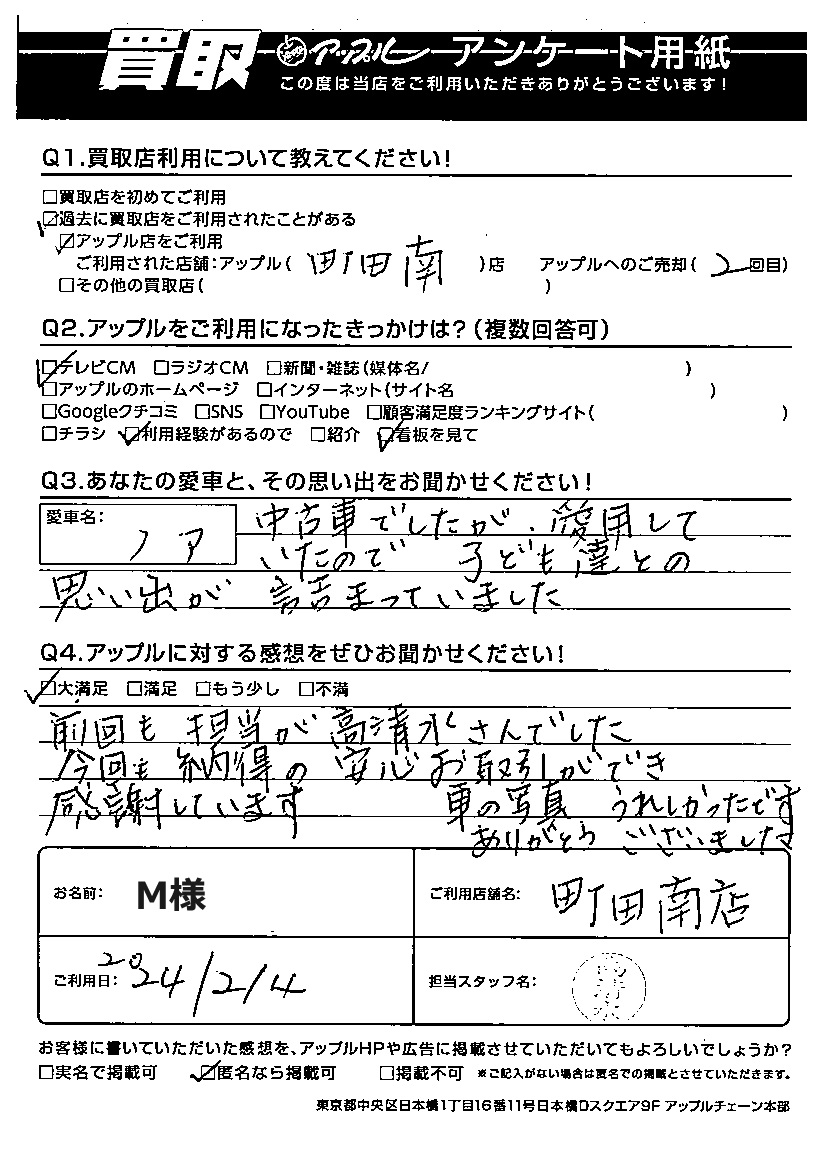 買取 アップル アンケート用紙
この度は当店をご利用いただきありがとうございます!
Q1.買取店利用について教えてください!
□買取店を初めてご利用
☑過去に買取店をご利用されたことがある
☑アップル店をご利用
ご利用された店舗:アップル( 町田南 )店 アップルへのご売却( 2回目)
□その他の買取店( )
Q2.アップルをご利用になったきっかけは?(複数回答可)
☑テレビCM □ラジオCM □新聞・雑誌(媒体名/ )
□アップルのホームページ □インターネット(サイト名 )
□Googleクチコミ □SNS □YouTube □顧客満足度ランキングサイト( )
□チラシ ☑利用経験があるので □紹介 ☑看板を見て
Q3.あなたの愛車と、その思い出をお聞かせください!
愛車名: ノア
中古車でしたが、愛用して
いたので 子ども達との
思い出が 詰まっていました
Q4.アップルに対する感想をぜひお聞かせください!
☑大満足 □満足 □もう少し □不満
前回も 担当が 高清水さんでした
今回も 納得の 安心お取引ができ
感謝しています 車の写真 うれしかったです
ありがとう ございました
お名前: M様
ご利用店舗名: 町田南店
ご利用日: 2024/2/4
担当スタッフ名: 高清水
お客様に書いていただいた感想を、アップルHPや広告に掲載させていただいてもよろしいでしょうか?
□実名で掲載可 ☑匿名なら掲載可 □掲載不可 ※ご記入がない場合は実名での掲載とさせていただきます。
東京都中央区日本橋1丁目16番11号日本橋Dスクエア9F アップルチェーン本部